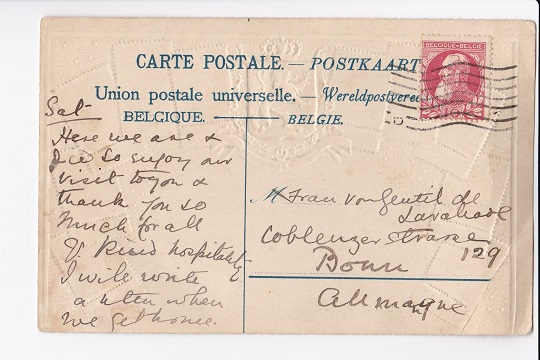 CARTE POSTALE. — POSTKAART
Union postale universelle. — Wereldpostveree
BELGIQUE. — BELGIE.
BELGIQUE-BELGIE
Sat
Here we are &
so enjoy our
visit to you &
thank you so
much for all
V. Kind hospitality
I will write
a when
we get home.
Frau von Gentil de
Coblenzer Strasse
129
Bonn
Allmangne